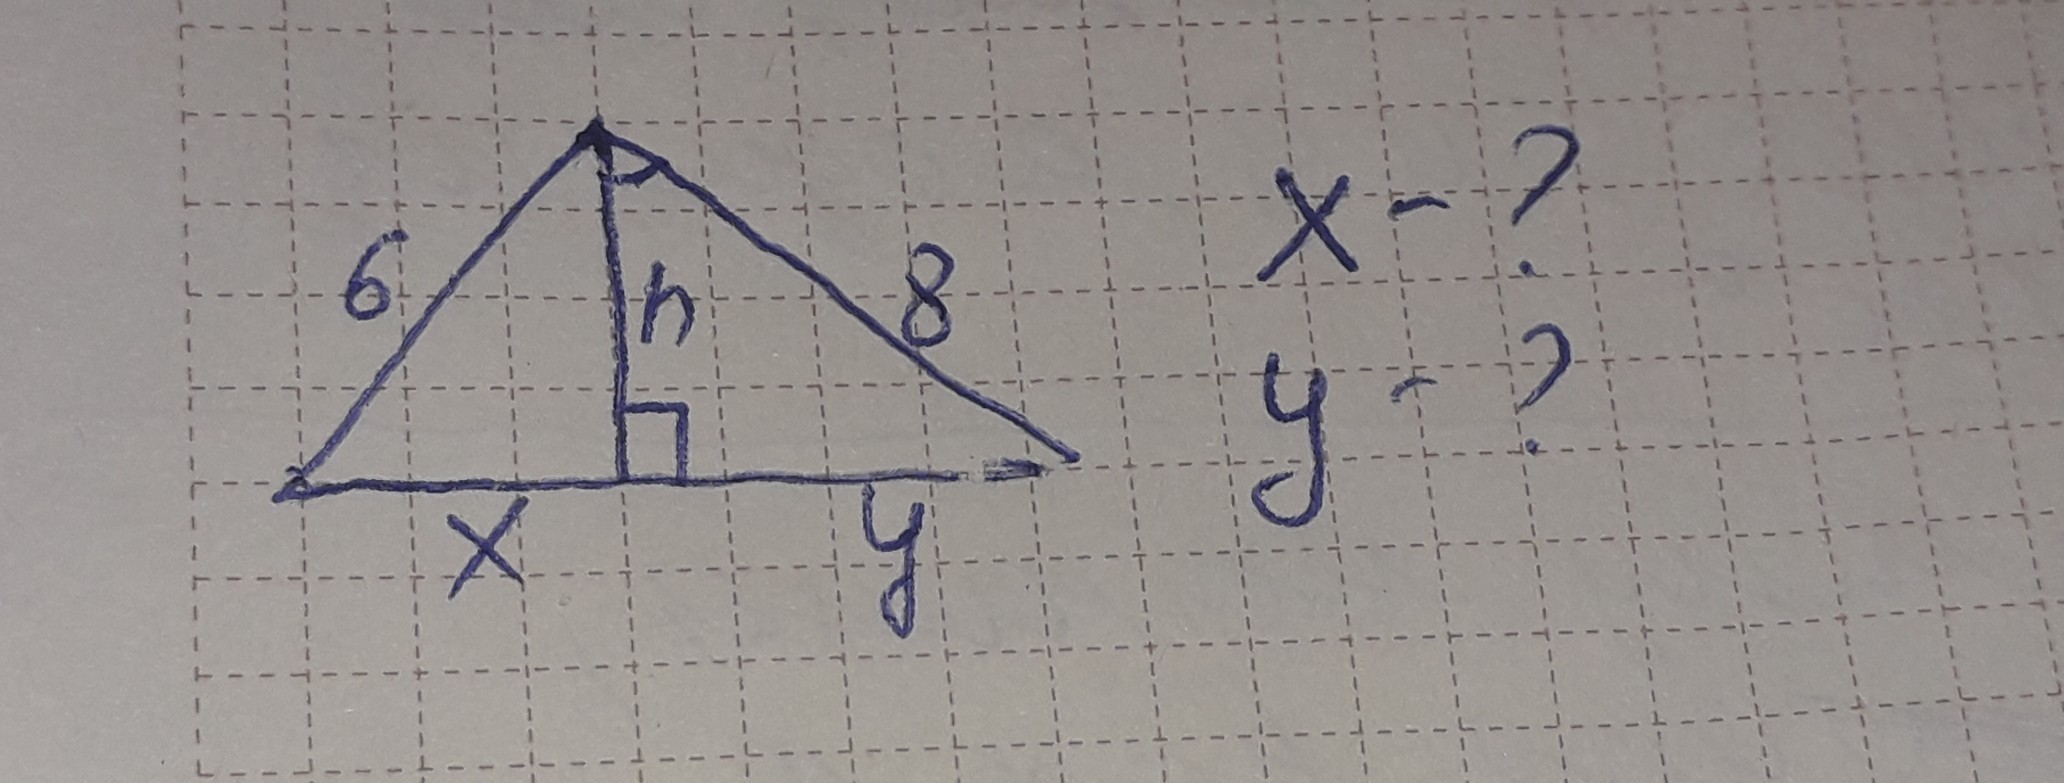 6
h
8
x
y
x - ?
y - ?